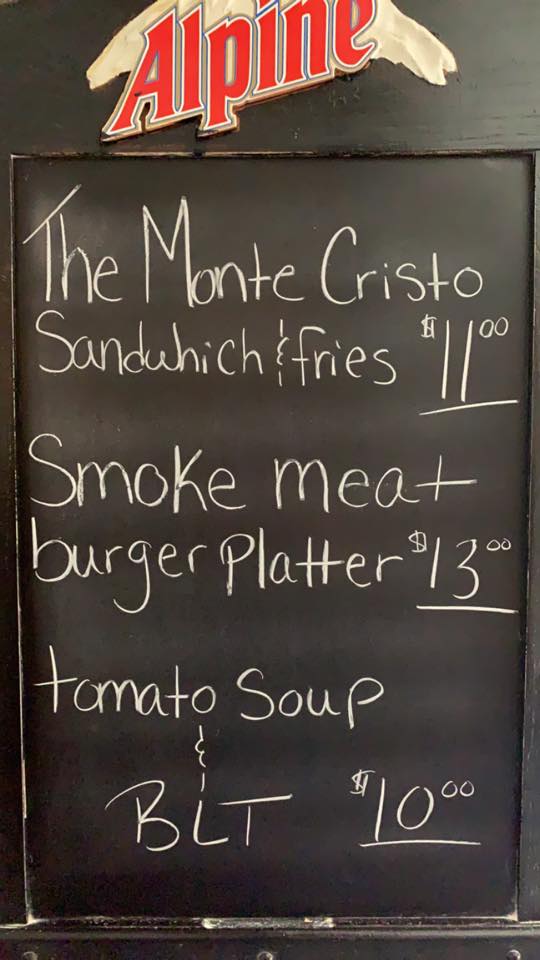 Alpine
The Monte Cristo
Sandwhich & fries $11.00
Smoke meat
burger Platter $13.00
tomato Soup
&
BLT $10.00